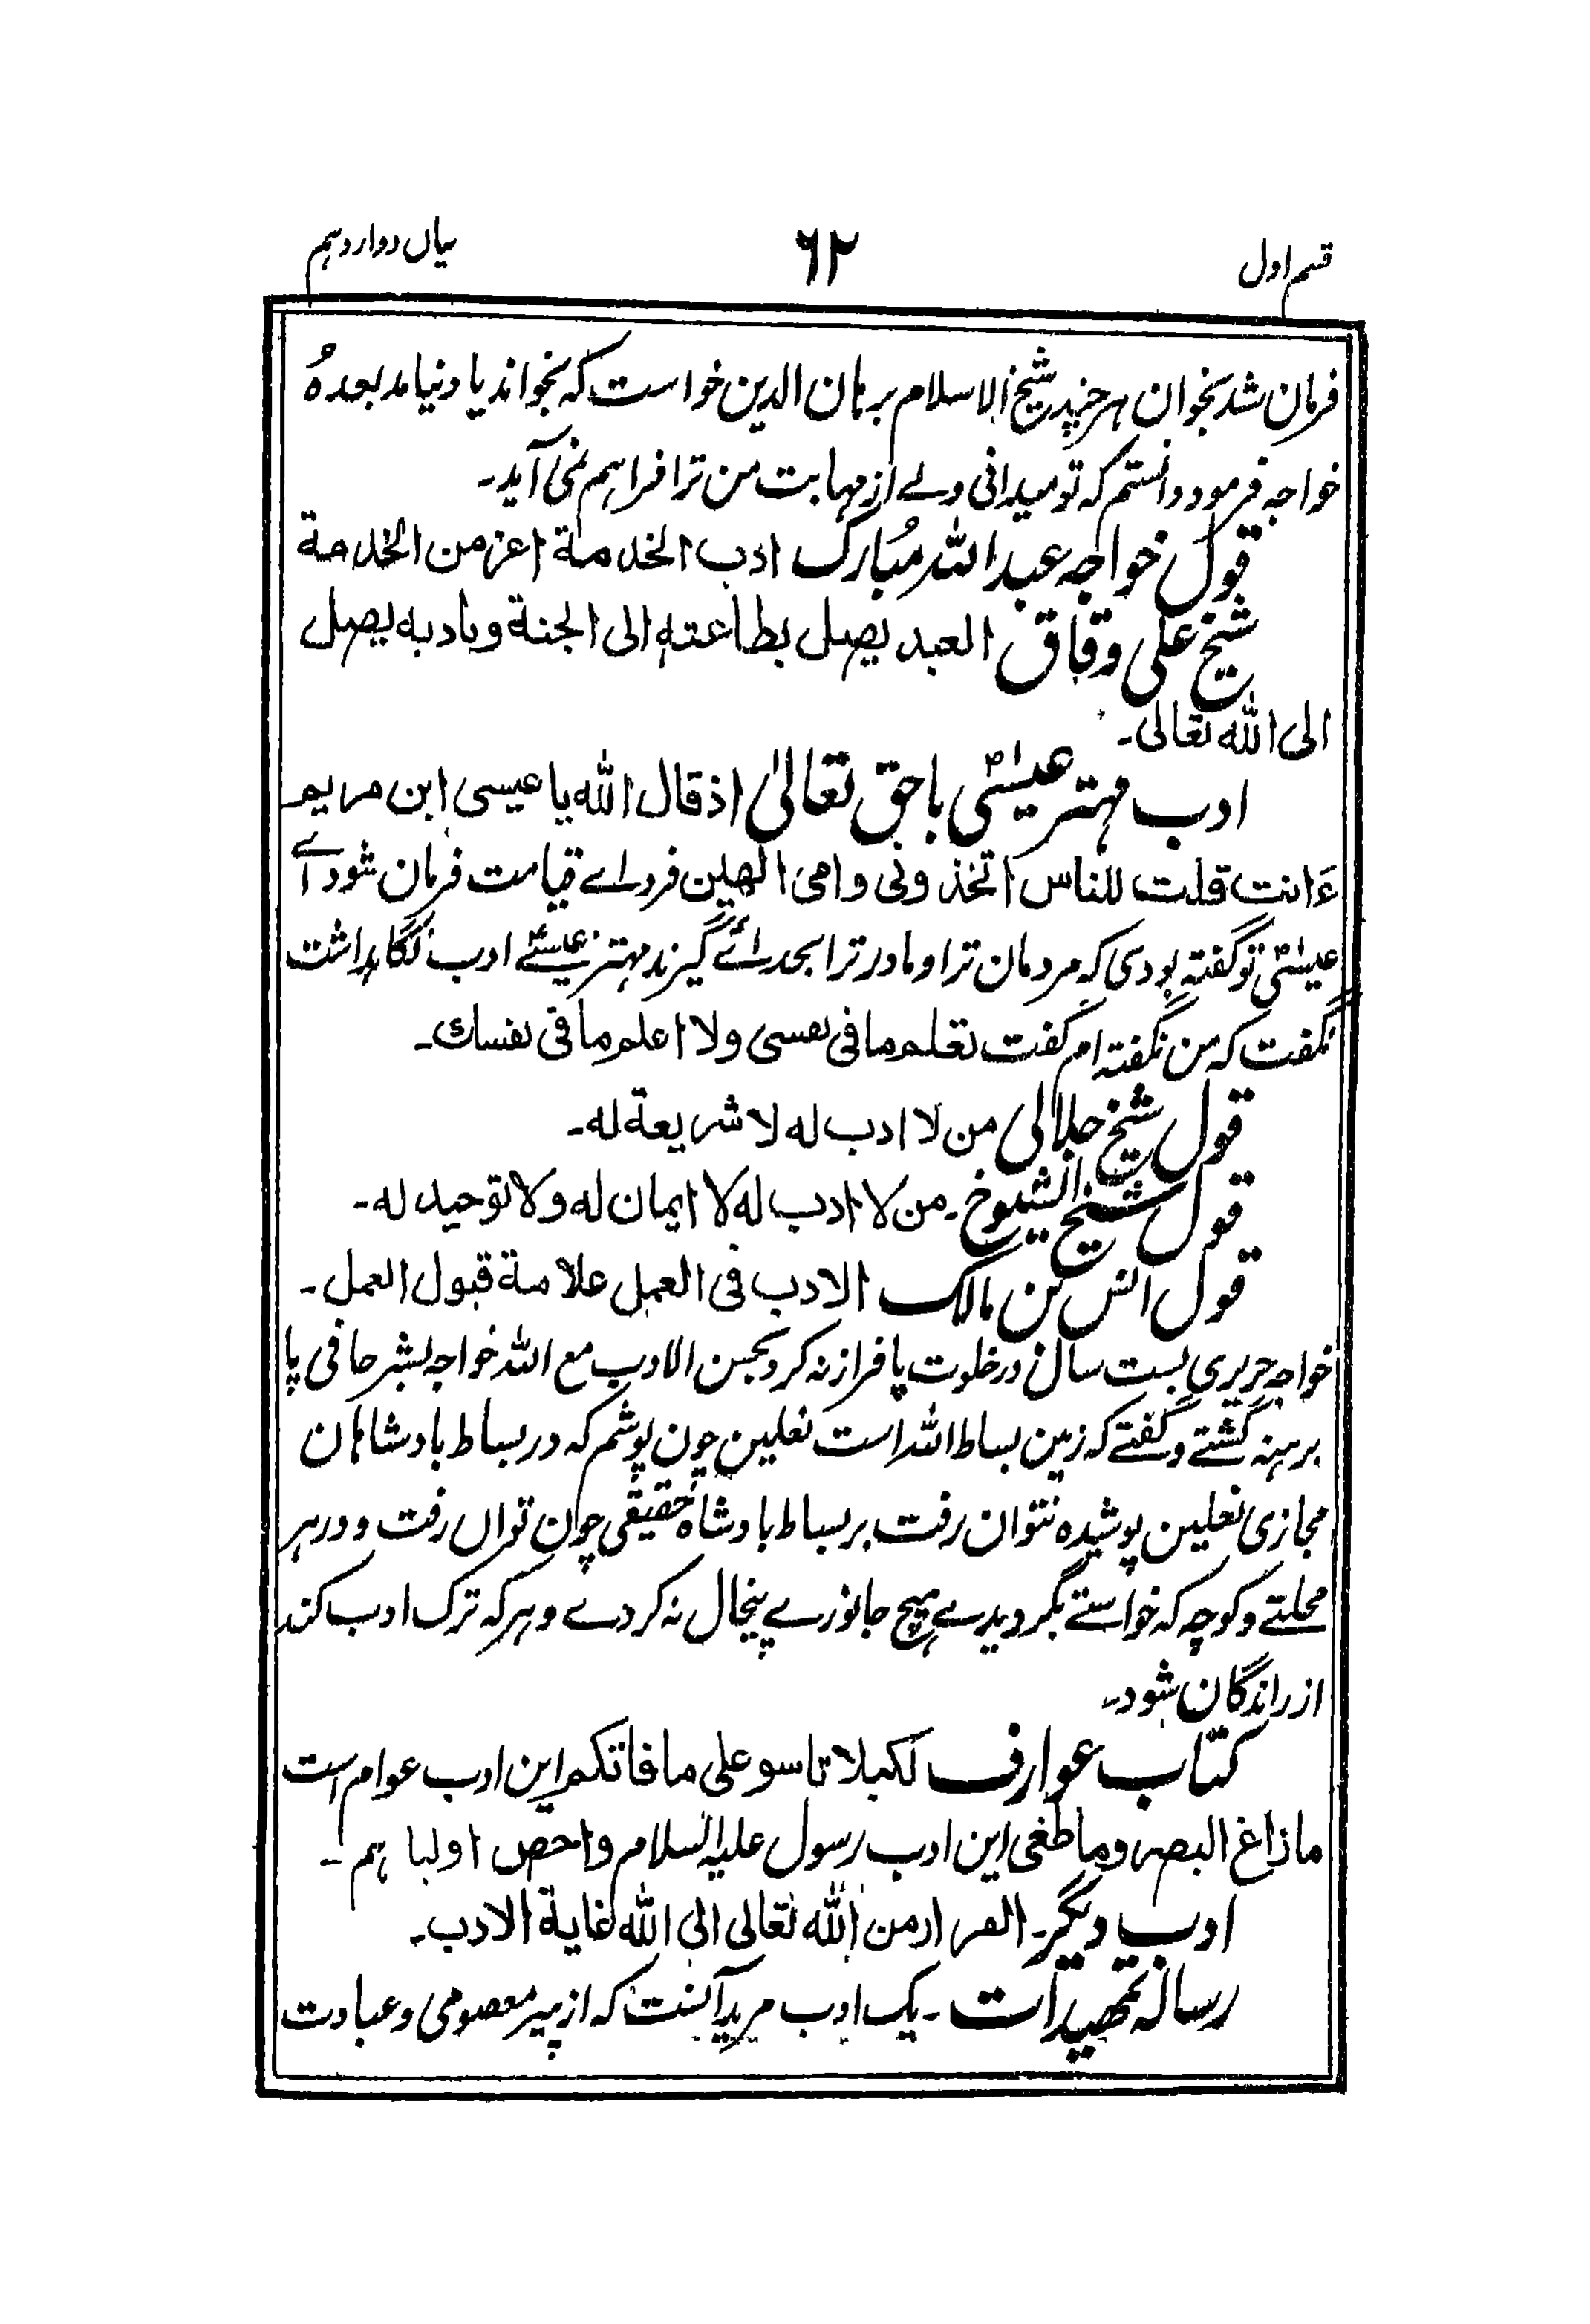 قسم اول
۶۲
بیان دواردہم
فرمان شد بخوان ہر چند شیخ الاسلام برہان الدین خواست کہ بخواند یاد نیامد بعدہُ
خواجہ فرمود دانستم کہ تو میدانی ولے از مہابت من ترا فراہم نمی آید۔
قول خواجہ عبداللہ مُبارک ادب الخدمة اعز من الخدمة
شیخ علی وقاق العبد یصل بطاعته الی الجنة وبادبه یصل
الی الله تعالی۔
ادب مہتر عیسٰیؑ باحق تعالیٰ اذ قال الله یا عیسی ابن مریم
ءَانت قلت للناس اتخذونی وامی الهین فردائے قیامت فرمان شود اے
عیسٰیؑ تو گفتہ بودی کہ مردمان ترا و مادر ترا بخدائے گیرند مہتر عیسٰےؑ ادب نگاہداشت
نگفت کہ من نگفتہ ام گفت تعلم ما فی نفسی ولا اعلم ما فی نفسك۔
قول شیخ جلالی من لا ادب له لا شریعة له۔
قول شیخ الشیوخ۔ من لا ادب له لا ایمان له ولا توحید له۔
قول انس بن مالک الادب فی العمل علامة قبول العمل۔
خواجہ جریری بست سال در خلوت پا فراز نہ کرد بحسن الادب مع اللہ خواجہ بشر حافی پا
برہنہ گشتے و گفتے کہ زمین بساط اللہ است نعلین چون پوشم کہ در بساط بادشاہان
مجازی نعلین پوشیدہ نتوان رفت بر بساط بادشاہ حقیقی چون تواں رفت و در ہر
محلتے و کوچہ کہ خواستے بگردیدے ہیچ جانورے پیخال نہ کردے و ہر کہ ترک ادب کند
از راندگان شود۔
کتاب عوارف لکیلا تاسو علی ما فاتکم این ادب عوام است
ما زاغ البصر وما طغی این ادب رسول علیہ السلام واخص اولیا ہم۔
ادب دیگر۔ الفرار من الله تعالی الی الله غایة الادب۔
رسالہ تمھیدات۔ یک ادب مرید آنست کہ از پیر معصومی و عبادت